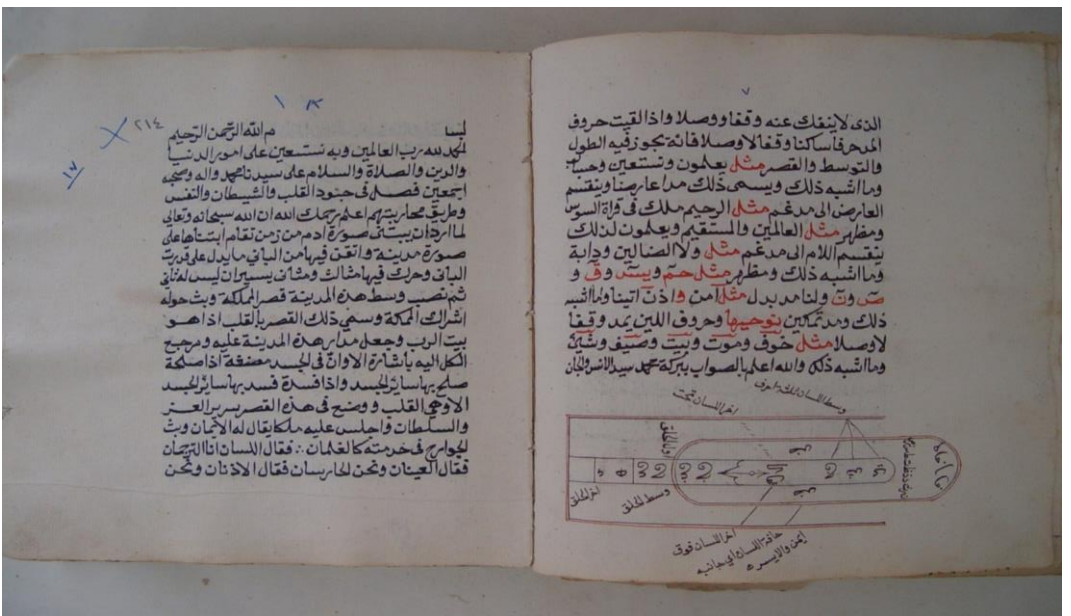 ٧
الذى لا ينفك عنه وقفا ووصلا واذا لقيت حروف
المد حرفا ساكنا وقفا لا وصلا فانه يجوز فيه الطول
والتوسط والقصر مثل يعلمون ونستعين وحساب
وما اشبه ذلك ويسمى ذلك مدا عارضا وينقسم
العارض الى مدغم مثل الرحيم ملك فى قراة السوس
ومظهر مثل العالمين والمستقيم ويعلمون لذلك
ينقسم اللام الى مدغم مثل ولا الضالين ودابة
وما اشبه ذلك ومظهر مثل حم ويس وق و
ص ون ولنا مد بدل مثل امن واذن اتينا وما اشبه
ذلك ومد تمكين نوحيها وحروف اللين يمد وقفا
لا وصلا مثل خوف وموت وبيت وصيف وشئ
وما اشبه ذلك والله اعلم بالصواب ببركة محمد سيد الانس والجان
وسط اللسان
اخر اللسان تحت
وسط الحلق
اخر الحلق
اخر اللسان فوق
حافة اللسان اي جانبه
ايمن والايسر
١ ١٨
٢١٤
١٧
م الله الرحمن الرحيم
الحمد لله رب العالمين وبه نستعين على امور الدنيا
والدين والصلاة والسلام على سيدنا محمد واله وصحبه
اجمعين فصل فى جنود القلب والشيطان والنفس
وطريق محاربتهم اعلم رحمك الله ان الله سبحانه وتعالى
لما اراد ان يبتنى صورة ادم من زمن تقام ابتناها على
صورة مدينة واتقن فيها من البانى ما يدل على قدرت
البانى وحرك فيها مثالث ومثانى يسيران ليس له ثانى
ثم نصب وسط هذه المدينة قصر المملكة وبث حوله
اشراك الحكمة وسمى ذلك القصر بالقلب اذا هو
بيت الرب وجعل مدار هذه المدينة عليه ومرجع
الكل اليه باشارة الا وان فى الجسد مضغة اذا صلحة
صلح بها سائر الجسد واذا فسدة فسد بها سائر الجسد
الا وهى القلب ووضع فى هذه القصر سرير العز
والسلطان واجلس عليه ملكا يقال له الايمان وبث
الجوارح فى خدمته كالغلمان فقال اللسان انا الترجمان
فقال العينان ونحن الحارسان فقال الاذنان ونحن